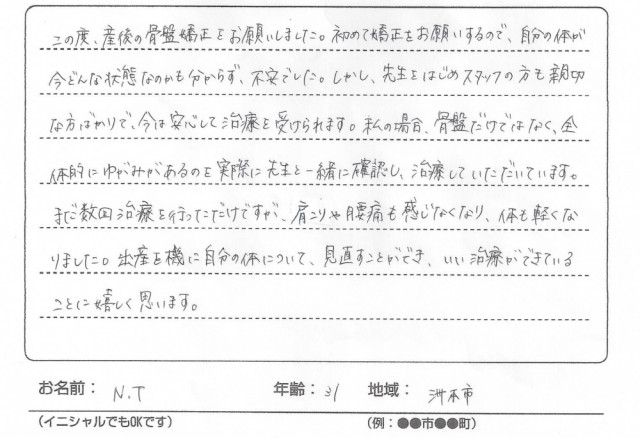 この度、産後の骨盤矯正をお願いしました。初めて矯正をお願いするので、自分の体が
今どんな状態なのかも分からず、不安でした。しかし、先生をはじめスタッフの方も親切
な方ばかりで、今は安心して治療を受けられます。私の場合、骨盤だけではなく、全
体的にゆがみがあるのを実際に先生と一緒に確認し、治療していただいています。
まだ数回治療を行っただけですが、肩こりや腰痛も感じなくなり、体も軽くな
りました。出産を機に自分の体について、見直すことができ、いい治療ができている
ことに嬉しく思います。
お名前： N.T 年齢： 31 地域： 洲本市
(イニシャルでもOKです) (例：●●市●●町)